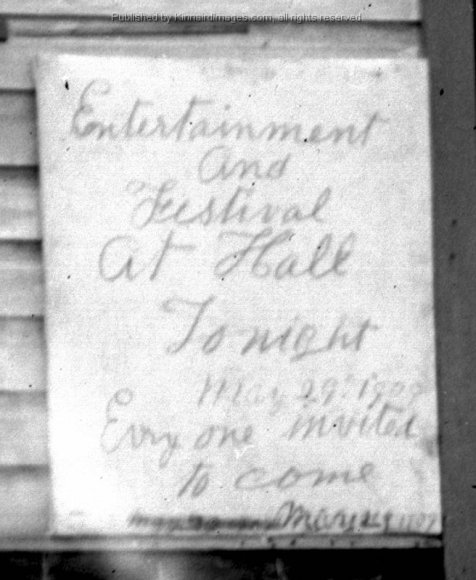 Published by Kinnairdimages.com, all rights reserved
Entertainment
And
Festival
At Hall
Tonight
May 29th
Evry one invited
to come
May 29